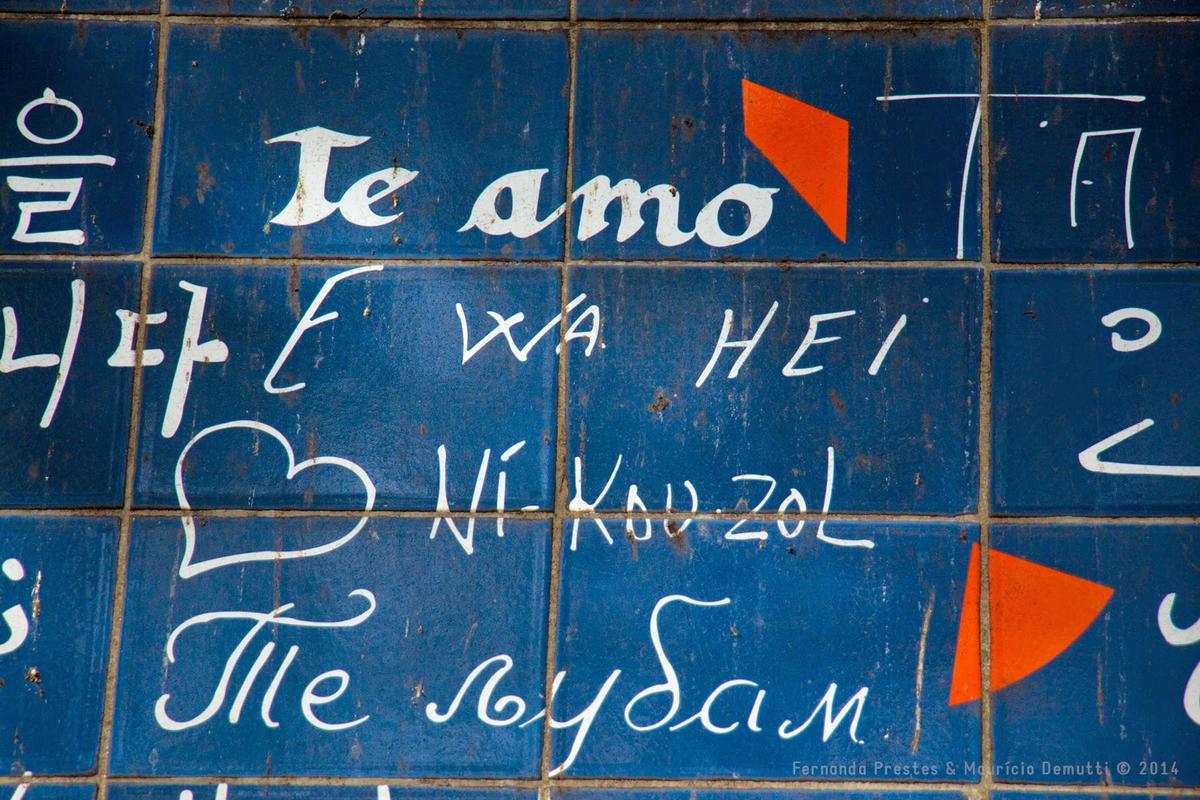 을 Te amo
니다 E WA HEI
Ni-KOU-ZOL
Те љубам
Fernanda Prestes & Maurício Demutti © 2014